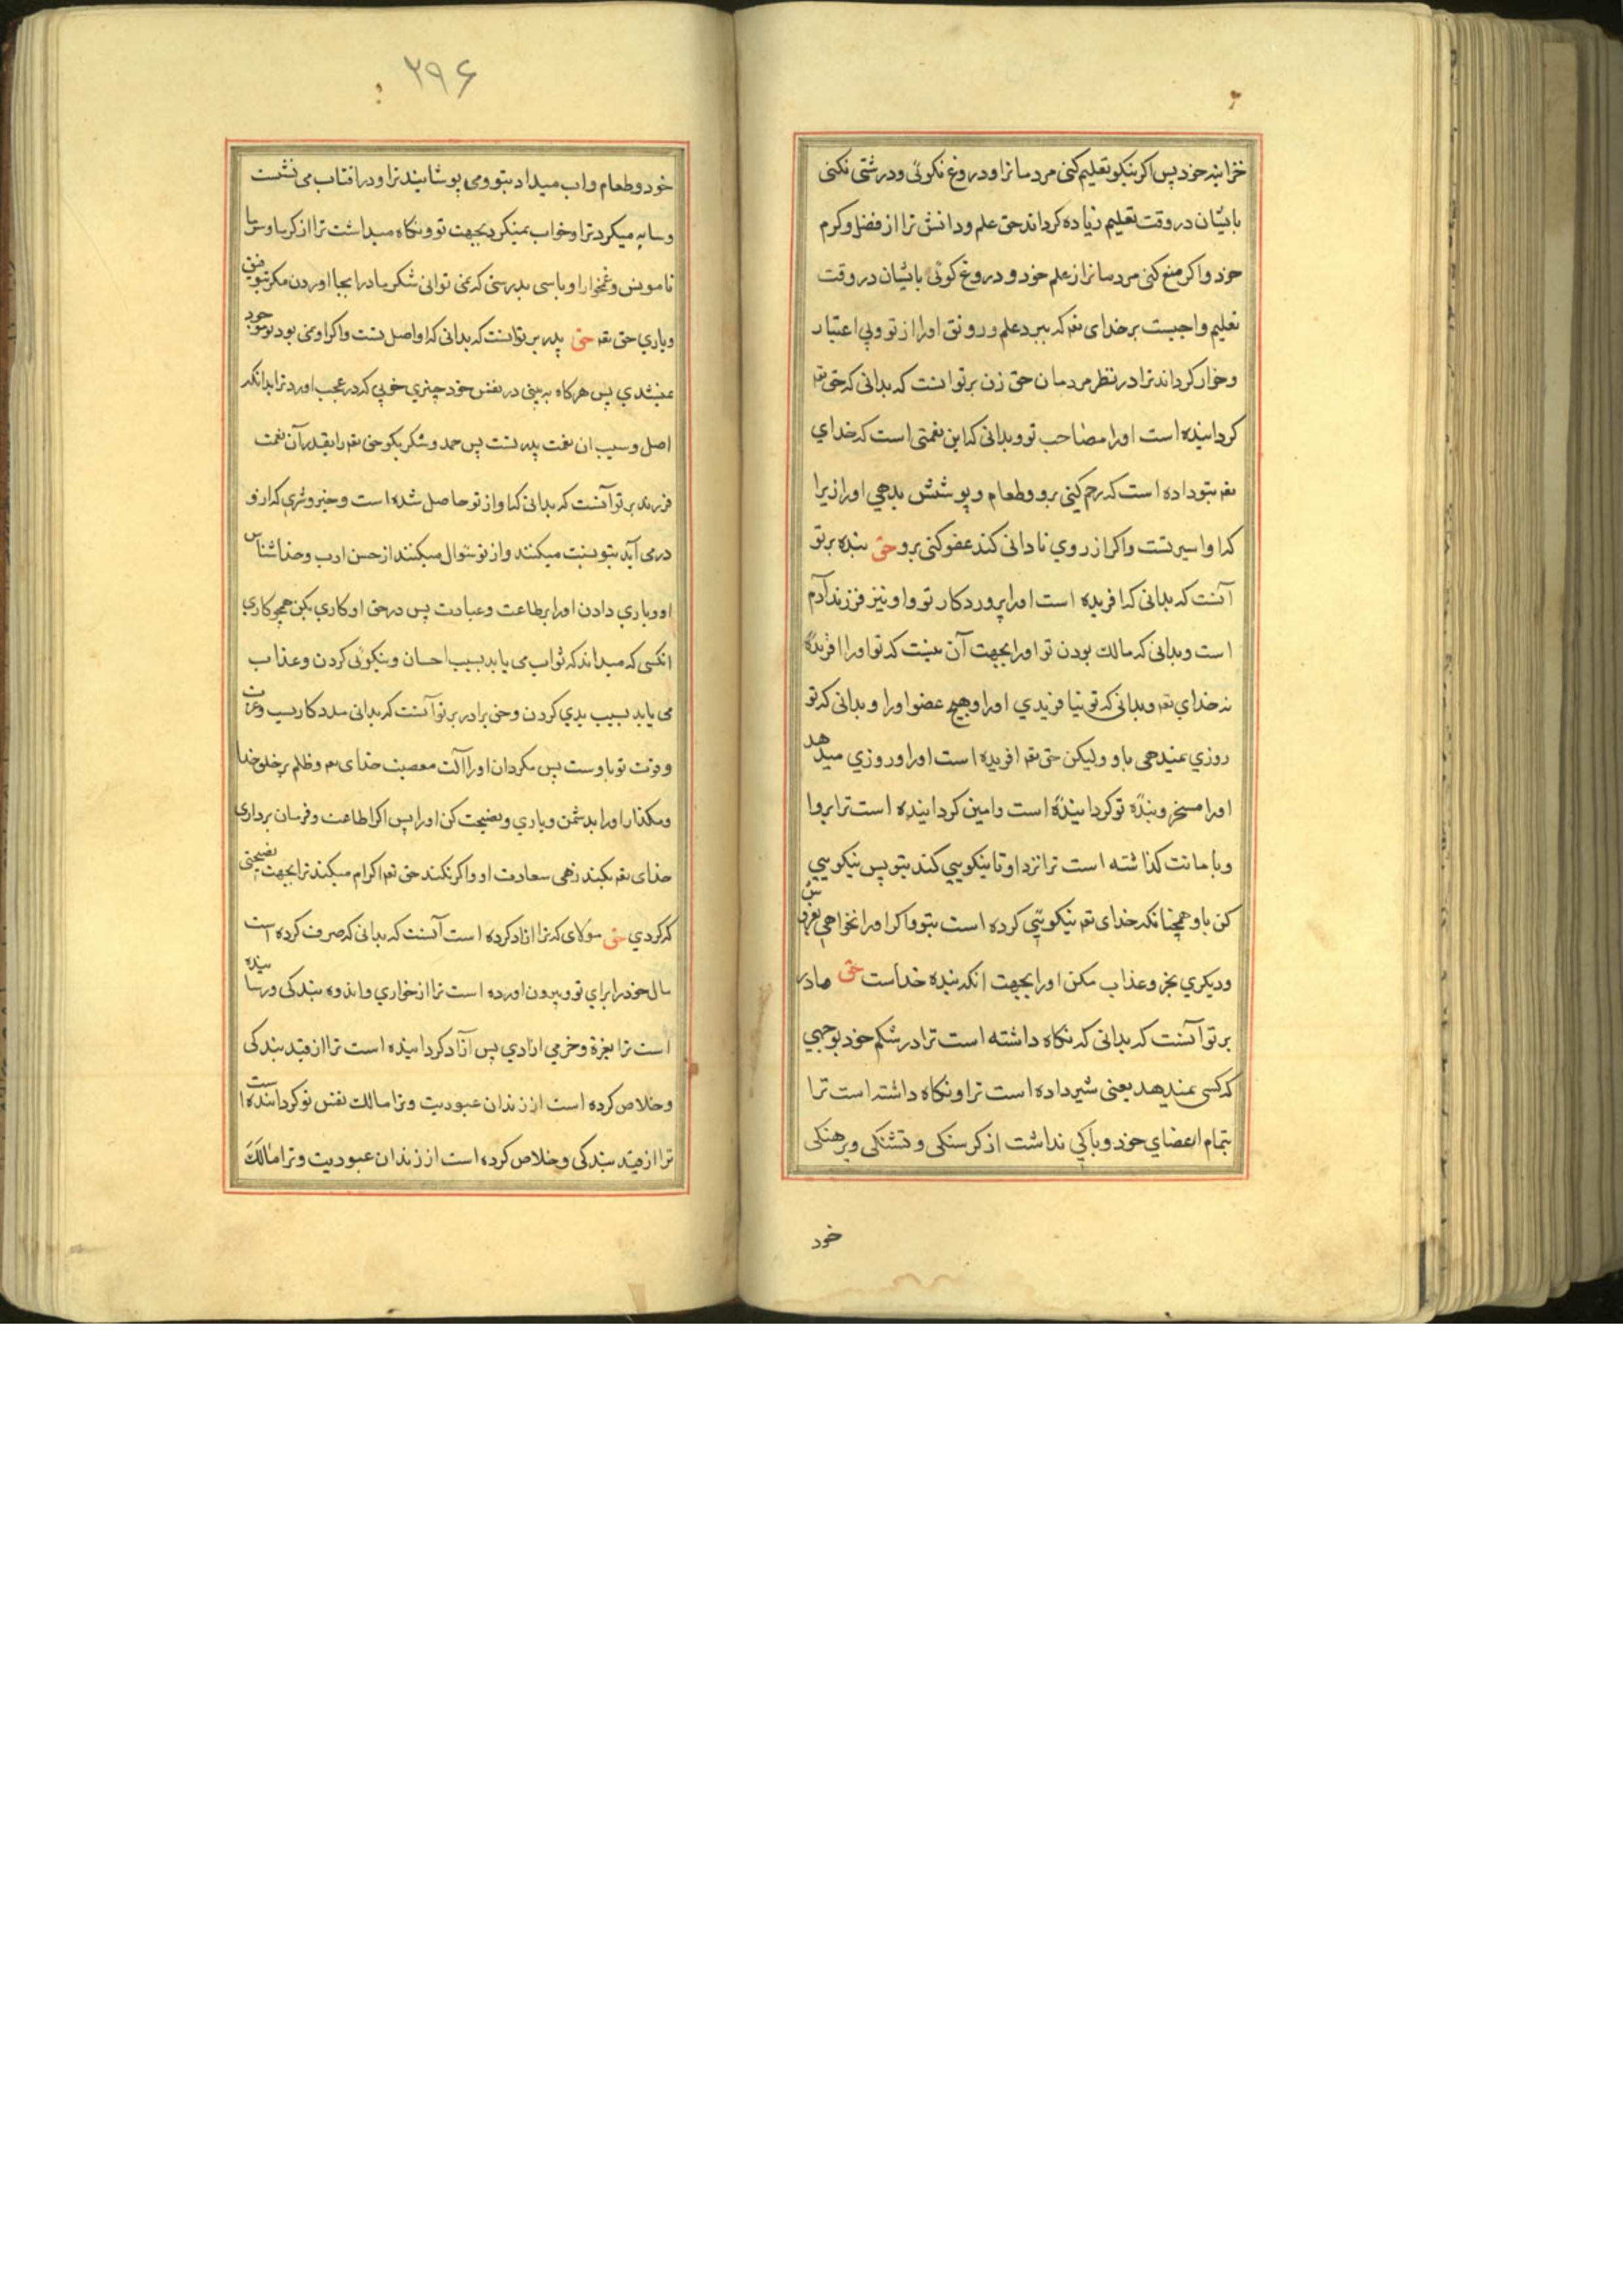 خزاینه خود پس اکر نیکو تعلیم کنی مردمانرا و دروغ نکوئی و درشتی نکنی
بایشان در وقت تعلیم زیاده کرداند حق علم و دانش ترا از فضل و کرم
خود و اکر منع کنی مردمانرا از علم خود و دروغ کوئی بایشان در وقت
تعلیم واجبست بر خدای تعم که ببرد علم و رونق او را از تو و بی اعتبار
و خوار کرداند ترا در نظر مردمان حق زن بر تو انست که بدانی که حق تعم
کردانیده است او را مصاحب تو و بدانی که این نعمتی است که خدای
تعم بتو داده است که رحم کنی برو و طعام و پوشش بدهی او را زیرا
که او اسیر تست و اکر از روی نادانی کند عفو کنی برو حق بنده بر تو
آنست که بدانی که افریده است او را پروردکار تو و او نیز فرزند آدم
است و بدانی که مالک بودن تو او را بجهت آن نیست که تو او را افریدهٔ
نه خدای تعم و بدانی که تو نیافریدی او را و هیچ عضو او را و بدانی که تو
روزی نمیدهی باو ولیکن حق تعم افریده است او را و روزی میدهد
او را مسخر و بندهٔ تو کردانیدهٔ است و امین کردانیده است ترا برو
و بامانت کذاشته است ترا نزد او تا نیکویی کند بتو پس نیکویی
کن باو همچنانکه خدای تعم نیکویی کرده است بتو و اکر او را نخواهی بفروش
و دیکری بخر و عذاب مکن او را بجهت انکه بنده خداست حق مادر
بر تو آنست که بدانی که نکاه داشته است ترا در شکم خود بوجهی
که کسی نمیدهد یعنی شیر داده است ترا و نکاه داشته است ترا
بتمام اعضای خود و باکی نداشت از کرسنکی و تشنکی و برهنکی
خود
۲۹۶
خود و طعام و اب میداد بتو و می پوشانید ترا و در افتاب می نشست
و سایه میکرد ترا و خواب نمیکرد بجهت تو و نکاه میداشت ترا از کرما و سرما
تا مونس و غمخوار او باسی بدرستی که نمی توانی شکر مادر را بجا اوردن مکر بتوفیق
و یاری حق تعم حق پدر بر تو انست که بدانی که او اصل تست و اکر او نمی بود تو موجود
نمیشدی پس هرکاه به بینی در نفس خود چیزی خوبی که در عجب اورد ترا بدانکه
اصل و سبب ان نعمت پدر تست پس حمد و شکر بکو حق تعم را بقدر آن نعمت
فرزند بر تو آنست که بدانی که او از تو حاصل شده است و خیر و شری که ازو
در می آید بتو نسبت میکنند و از تو سئوال میکنند از حسن ادب و خداشناس
او و یاری دادن او را بر طاعت و عبادت پس در حق او کاری بکن همچو کاری
انکسی که میداند که ثواب می یابد بسبب احسان و نیکوئی کردن و عذاب
می یابد بسبب بدی کردن و حق برادر بر تو آنست که بدانی مددکار بسبب و عزت
و قوت تو باوست پس مکردان او را آلت معصیت خدای تعم و ظلم بر خلق خدا
و مکذار او را بدشمن و یاری و نصیحت کن او را پس اکر اطاعت و فرمان برداری
خدای تعم بکند زهی سعادت او و اکر نکند حق تعم اکرام میکند ترا بجهت نصیحتی
که کردی حق مولای که ترا ازاد کرده است آنست که بدانی که صرف کرده است
مال خود را برای تو و بیرون اورده است ترا از خواری و اندوه بندکی و رسانیده
است ترا بعزة و خرمی ازادی پس آزاد کردانیده است ترا از قید بندکی
و خلاص کرده است از زندان عبودیت و ترا مالک نفس تو کردانیده است
ترا از قید بندکی و خلاص کرده است از زندان عبودیت و ترا مالک